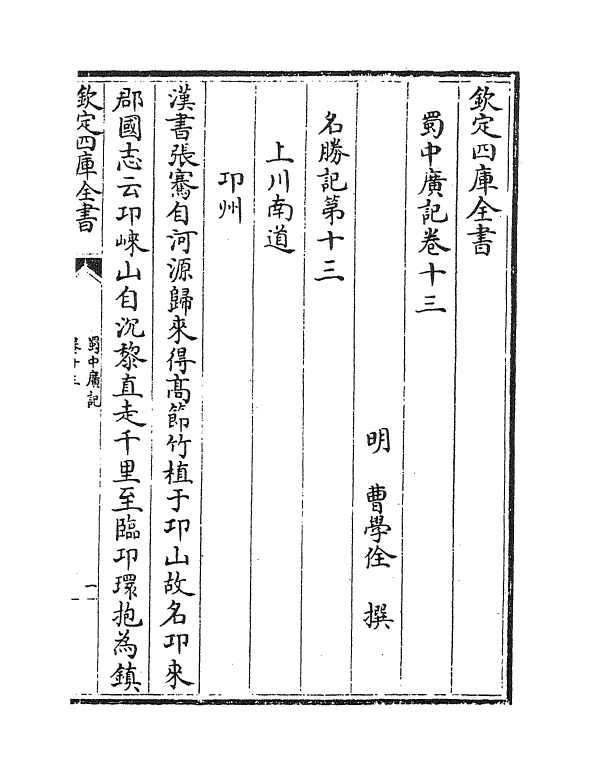 欽定四庫全書
蜀中廣記卷十三
明 曹學佺 撰
名勝記第十三
上川南道
邛州
漢書張騫自河源歸來得高節竹植于邛山故名邛來
郡國志云邛崍山自沉黎直走千里至臨邛環抱為鎮
欽定四庫全書
蜀中廣記
卷十三
一